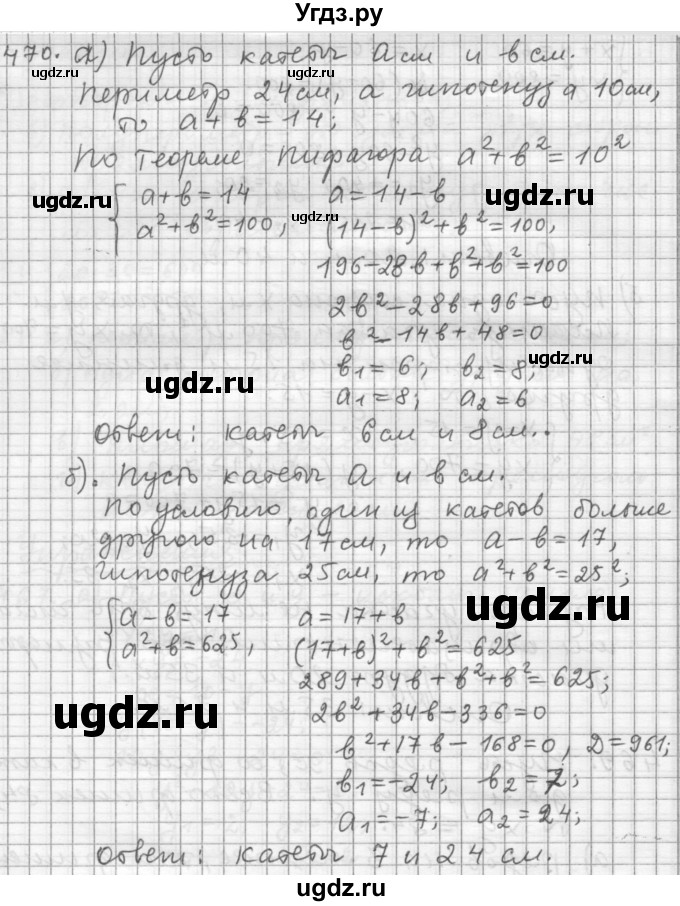 Угдз.ру
470. а) Пусть катеты a см и b см.
ugdz.ru ugdz.ru ugdz.ru
Периметр 24см, а гипотенуза 10см,
то a + b = 14;
По теореме Пифагора a² + b² = 10²
ugdz.ru ugdz.ru ugdz.ru
{ a + b = 14 a = 14 - b
a² + b² = 100, (14 - b)² + b² = 100,
196 - 28b + b² + b² = 100
2b² - 28b + 96 = 0
b² - 14b + 48 = 0
ugdz.ru ugdz.ru
b₁ = 6; b₂ = 8;
a₁ = 8; a₂ = 6
Ответ: катеты 6см и 8см..
б). Пусть катеты a и b см.
По условию, один из катетов больше
другого на 17см, то a - b = 17,
гипотенуза 25см, то a² + b² = 25²;
ugdz.ru
{ a - b = 17 a = 17 + b
a² + b = 625, (17 + b)² + b² = 625
289 + 34b + b² + b² = 625;
ugdz.ru
2b² + 34b - 336 = 0
b² + 17b - 168 = 0, D = 961;
b₁ = -24; b₂ = 7;
a₁ = -7; a₂ = 24;
ugdz.ru
Ответ: катеты 7 и 24 см.
ugdz.ru